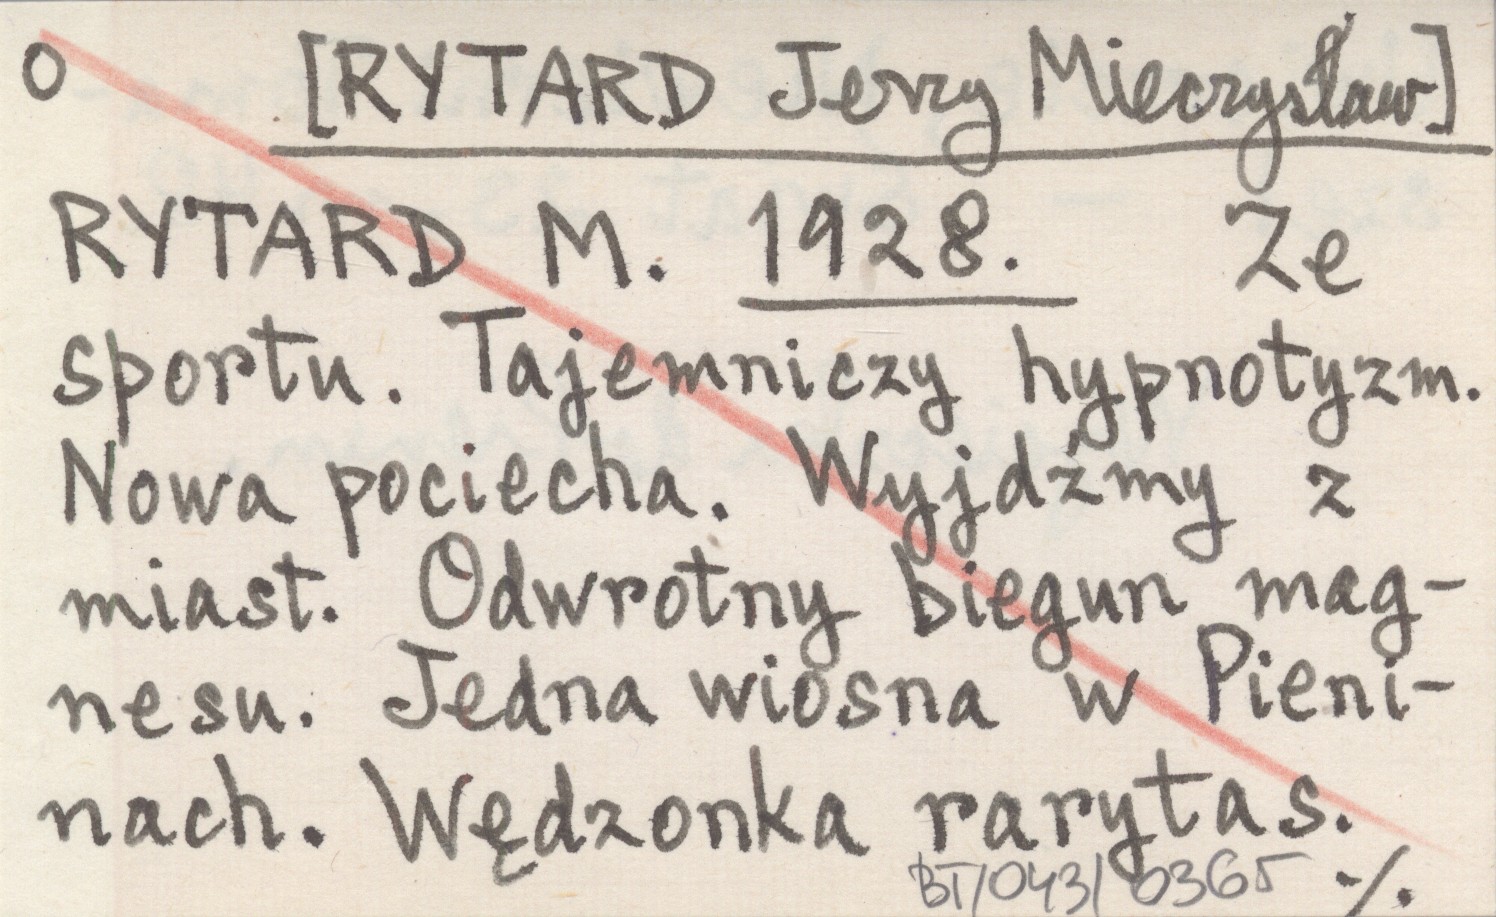 O [RYTARD Jerzy Mieczysław]
RYTARD M. 1928. Ze
sportu. Tajemniczy hypnotyzm.
Nowa pociecha. Wyjdźmy z
miast. Odwrotny biegun mag-
nesu. Jedna wiosna w Pieni-
nach. Wędzonka rarytas.
BT/043/0365 ·/.